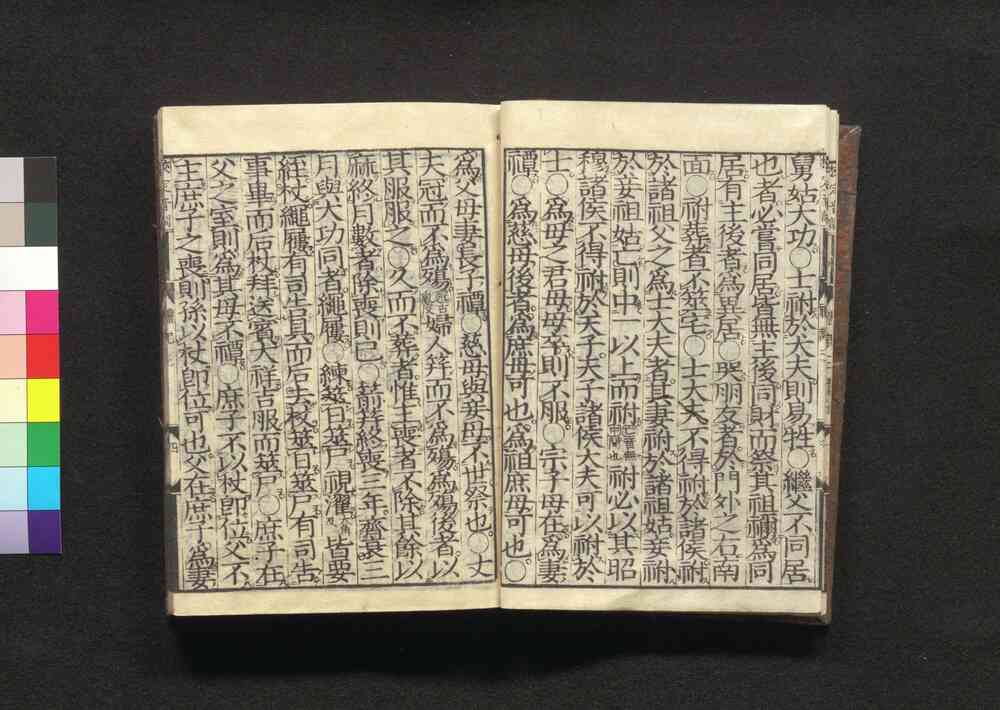 舅姑大功○士祔於大夫則易牲○繼父不同居
也者必嘗同居皆無主後同財而祭其祖禰爲同
居有主後者爲異居○哭朋友者於門外之右南
面○祔葬者不筮宅○士大夫不得祔於諸侯祔
於諸祖父之爲士大夫者其妻祔於諸祖姑妾祔
於妾祖姑亡則中一以上而祔祔必以其昭
穆諸侯不得祔於天子天子諸侯大夫可以祔於
士○爲母之君母母卒則不服○宗子母在爲妻
禫○爲慈母後者爲庶母可也爲祖庶母可也○
爲父母妻長子禫○慈母與妾母不世祭也○丈
夫冠而不爲殤婦人笄而不爲殤爲殤後者以
其服服之○久而不葬者惟主喪者不除其餘以
麻終月數者除喪則已○箭笄終喪三年齊衰三
月與大功同者繩屨○練筮日筮尸視濯皆要
絰杖繩屨有司告具而后去杖筮日筮尸有司告
事畢而后杖拜送賓大祥吉服而筮尸○庶子在
父之室則爲其母不禫○庶子不以杖卽位父不
主庶子之喪則孫以杖卽位可也父在庶子爲妻